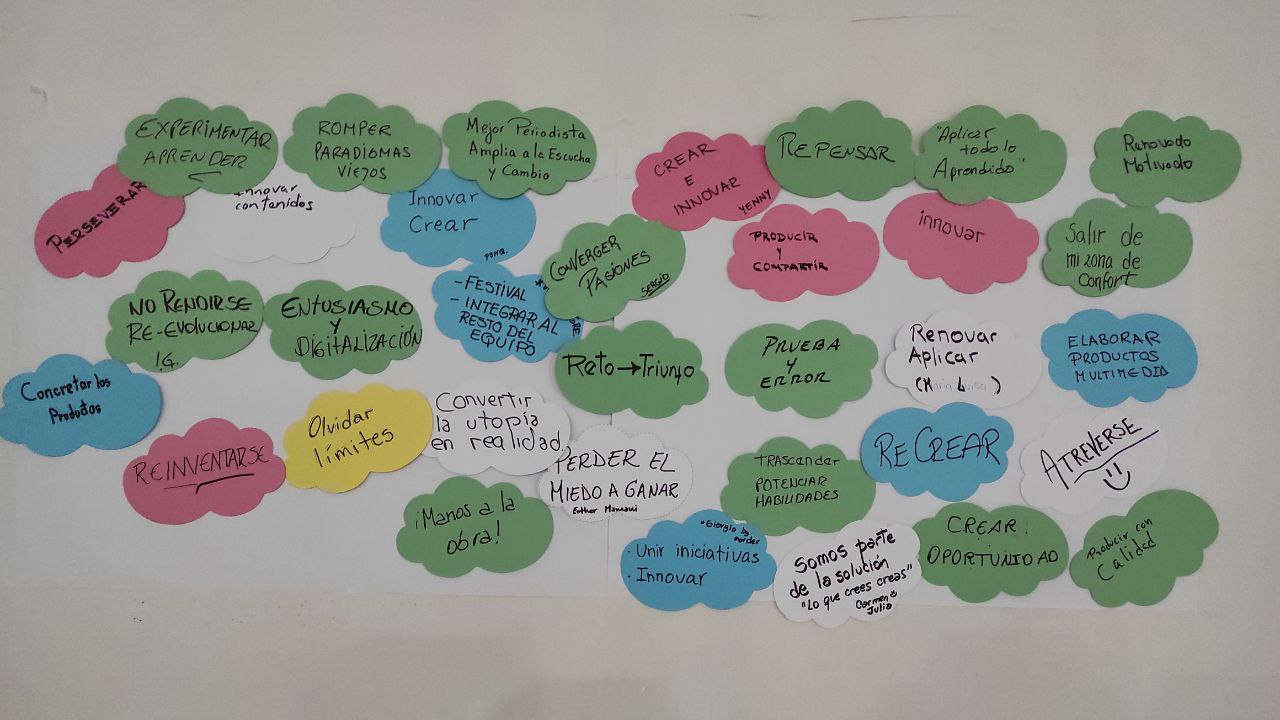 EXPERIMENTAR
APRENDER
ROMPER
PARADIGMAS
VIEJOS
Mejor Periodista
Amplia a la Escucha
y Cambio
CREAR
E
INNOVAR
YENNY
REPENSAR
"Aplicar
todo lo
Aprendido"
Renovado
Motivado
PERSEVERAR
Innovar
contenidos
Innovar
Crear
CONVERGER
PASIONES
SERGIO
PRODUCIR
y
COMPARTIR
innovar
Salir de
mi zona de
Confort
NO RENDIRSE
RE-EVOLUCIONAR
I.G.
ENTUSIASMO
y
DIGITALIZACIÓN
- FESTIVAL
- INTEGRAR AL
RESTO DEL
EQUIPO
Reto → Triunfo
PRUEBA
y
ERROR
Renovar
Aplicar
(María Luisa)
ELABORAR
PRODUCTOS
MULTIMEDIA
Concretar los
Productos
REINVENTARSE
Olvidar
límites
Convertir
la utopía
en realidad
PERDER EL
MIEDO A GANAR
Esther Mamani
TRASCENDER
POTENCIAR
HABILIDADES
RECREAR
ATREVERSE
¡Manos a la
obra!
"Giorgio by
· Unir iniciativas
· Innovar
Somos parte
de la solución
"Lo que crees creas"
Carmen
Julia
CREAR
OPORTUNIDAD
Producir con
Calidad